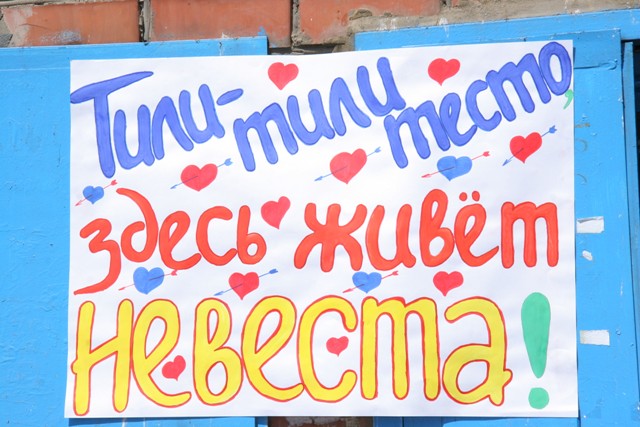 Тили-тили тесто,
здесь живёт
невеста!